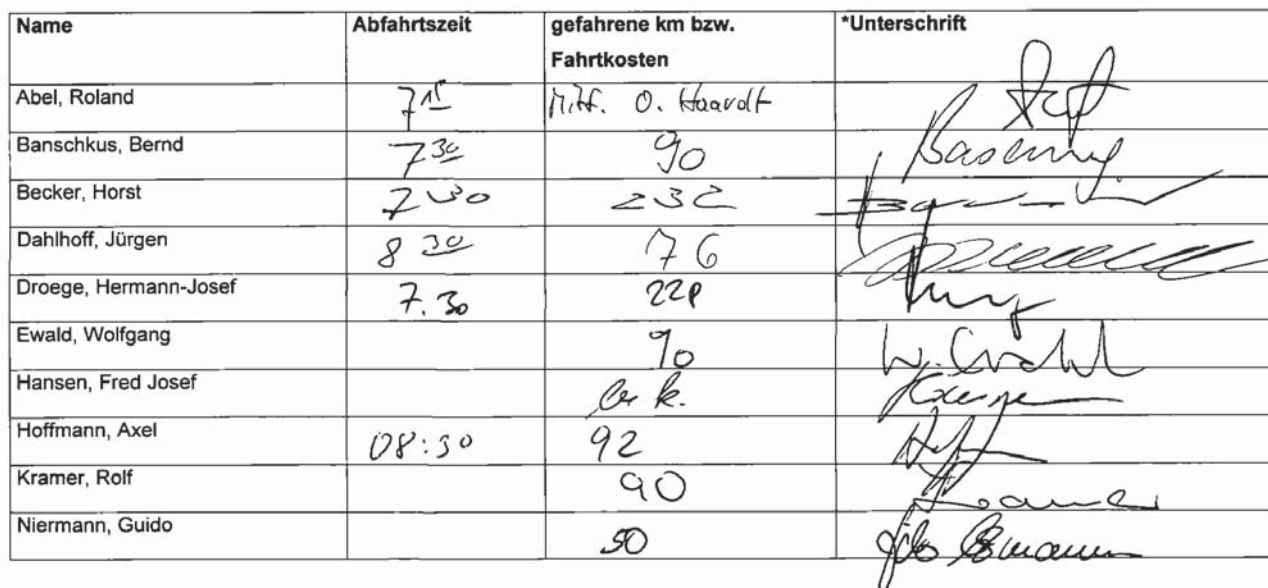 Name Abfahrtszeit gefahrene km bzw. Fahrtkosten *Unterschrift
Abel, Roland 7 15 Mitf. O. Haardt
Banschkus, Bernd 7 30 90
Becker, Horst 7 30 232
Dahlhoff, Jürgen 8 30 76
Droege, Hermann-Josef 7.30
Ewald, Wolfgang 90 W. Ewald
Hansen, Fred Josef
Hoffmann, Axel 08:30 92
Kramer, Rolf 90 Kramer
Niermann, Guido 50